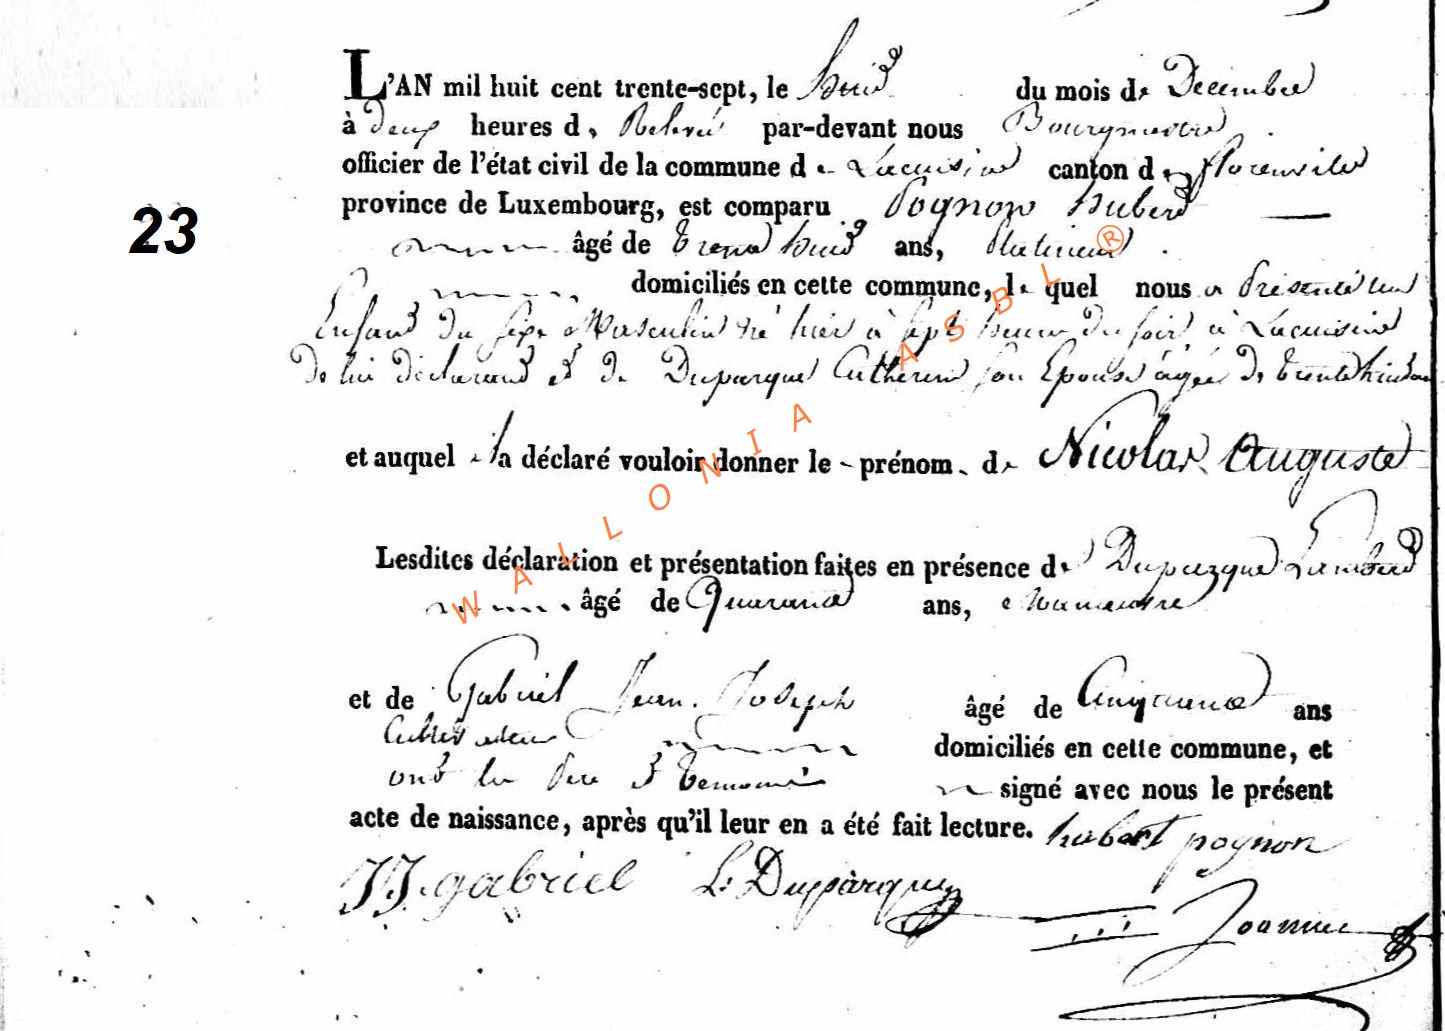 L'AN mil huit cent trente-sept, le huit du mois de Decembre
à deux heures de Relevé par-devant nous Bourgmestre
officier de l'état civil de la commune de Lacuisine canton de florenville
province de Luxembourg, est comparu Pognon hubert
23
âgé de trente huit ans,
domiciliés en cette commune, lequel nous a Présenté un
Enfant du sexe Masculin né hier à sept heures du soir, à Lacuisine
de lui déclarant et de Duparque Catherine son Epouse âgée de trente huit ans
et auquel il a déclaré vouloir donner le prénom de Nicolas Auguste
Lesdites déclaration et présentation faites en présence de Duparque Lambert
âgé de Quarante ans,
et de Gabriel Jean Joseph âgé de Cinquante ans
Cultivateur domiciliés en cette commune, et
ont les Père et temoins signé avec nous le présent
acte de naissance, après qu'il leur en a été fait lecture. hubert pognon
JJ. gabriel L. Dupparque
WALLONIA ASBL ®